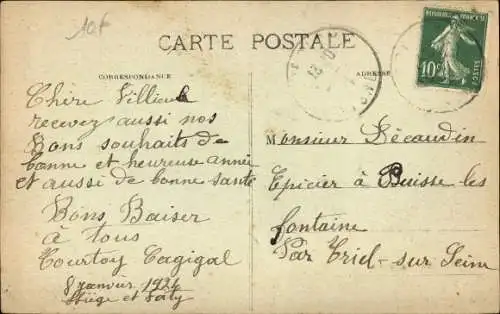 10f
CARTE POSTALE
CORRESPONDANCE
ADRESSE
10c
Chère
recevez aussi nos
Bons souhaits de
bonne et heureuse année
et aussi de bonne santé
Bons Baiser
à tous
Tourtoy Cagigal
8 janvier 1924
et
Monsieur Décaudin
Epicier à Buisse les
fontaine
Par Triel-sur Seine